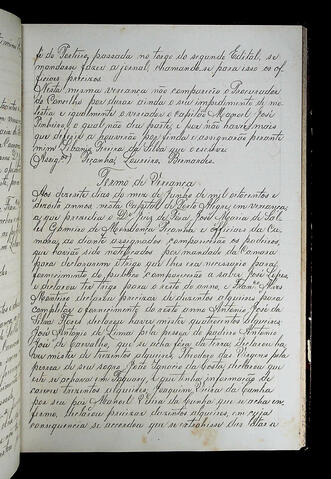 fé do Porteiro, passada no tergo do segundo Edital, se
mandasse fazer a jornal, chamando-se para isso os of-
ficiaes precizos
Nesta mesma vereança não compareceo o Procurador
do Concelho por durar ainda o seu impedimento de mo-
lestia e igualmente o vereador o capitão Manoel José
o qual não deu parte, e por não haver mais
que deferir a houverão por finda e assignarão perante
mim Albano Pereira da Silva que o escrevi
Pecanha, Loureiro, Bernardes.
Termo de Vereança
Aos dezoito dias do mez de Junho de mil oitocentos e
dezoito annos nesta Capital de Porto Alegre, em vereança
a que presidio o Dr Juiz de Fóra, José Maria de Sal-
les Gameiro de Mendonça Pecanha e officiaes da Ca-
mara, ao diante assignados comparecerão os padeiros,
que havião sido notificados por mandado da Camara
para declararem o trigo que lhes era necessario para
fornecimento do publico comparecendo a saber José Lopes
e declarou ter trigo para o resto do anno, e Franco Alves
Monteiro declarou precizar de duzentos alqueires para
completar o fornecimento do resto anno Antonio José da
Silva Flores declarou haver mister quatrocentos alqueires,
José Antonio de Lima, pela pessoa do padeiro Antonio
José de Carvalho, que se acha fóra da terra, declarou ha-
ver mister de trezentos alqueires, Theodoro das Virgens pela
pessoa do seu sogro João Ignacio da Costa, declarou que
elle se achava em Taquary, e que tinha informação de
carecer trezentos alqueires, Joaquim Vieira da Cunha
por seu pai Manoel Vieira da Cunha que se acha en-
fermo, declarou precizar duzentos alqueires, em cuja
consequencia se accordou que se estabelece dos